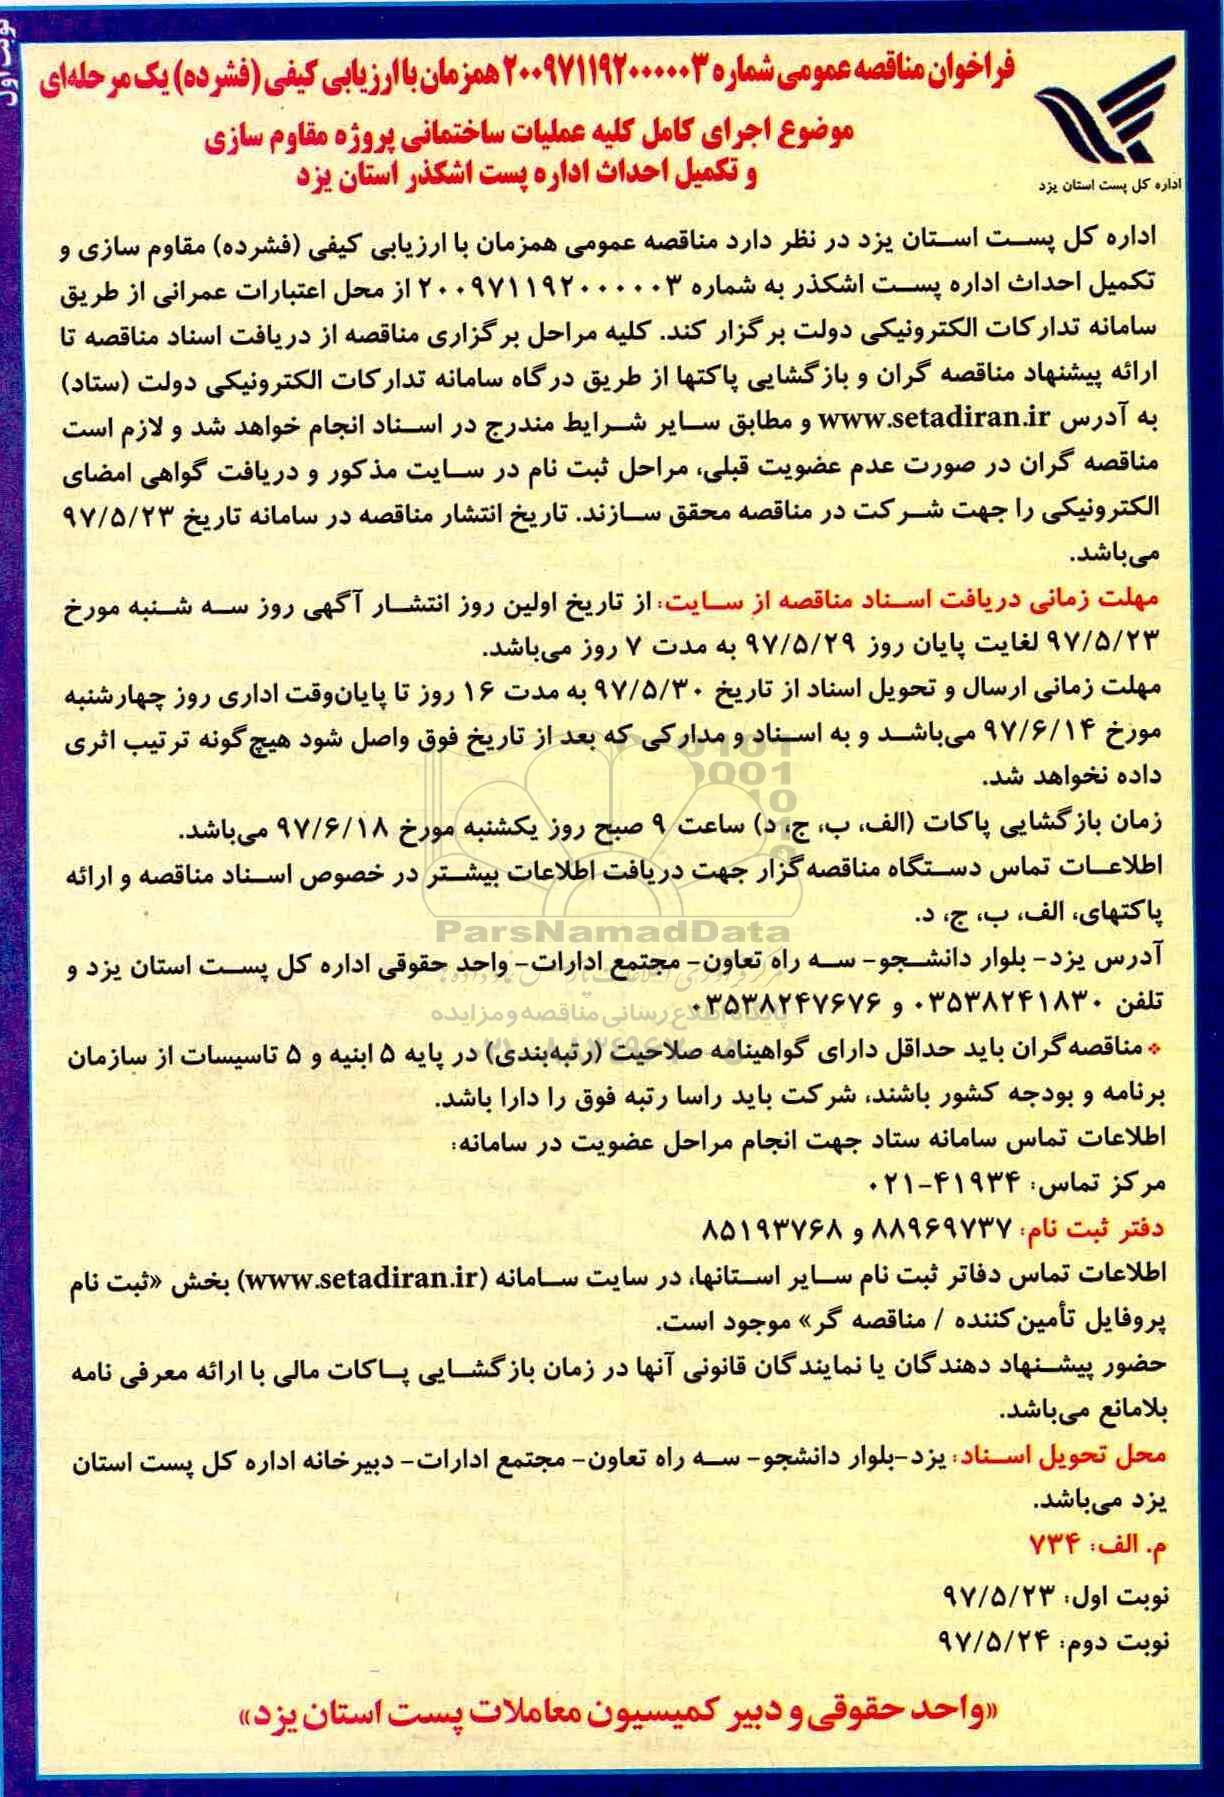 نوبت اول
فراخوان مناقصه عمومی شماره ۲۰۰۹۷۱۱۹۲۰۰۰۰۰۳ همزمان با ارزیابی کیفی (فشرده) یک مرحله‌ای
موضوع اجرای کامل کلیه عملیات ساختمانی پروژه مقاوم سازی
و تکمیل احداث اداره پست اشکذر استان یزد
اداره کل پست استان یزد
اداره کل پست استان یزد در نظر دارد مناقصه عمومی همزمان با ارزیابی کیفی (فشرده) مقاوم سازی و
تکمیل احداث اداره پست اشکذر به شماره ۲۰۰۹۷۱۱۹۲۰۰۰۰۰۳ از محل اعتبارات عمرانی از طریق
سامانه تدارکات الکترونیکی دولت برگزار کند. کلیه مراحل برگزاری مناقصه از دریافت اسناد مناقصه تا
ارائه پیشنهاد مناقصه گران و بازگشایی پاکتها از طریق درگاه سامانه تدارکات الکترونیکی دولت (ستاد)
به آدرس www.setadiran.ir و مطابق سایر شرایط مندرج در اسناد انجام خواهد شد و لازم است
مناقصه گران در صورت عدم عضویت قبلی، مراحل ثبت نام در سایت مذکور و دریافت گواهی امضای
الکترونیکی را جهت شرکت در مناقصه محقق سازند. تاریخ انتشار مناقصه در سامانه تاریخ ۹۷/۵/۲۳
می‌باشد.
مهلت زمانی دریافت اسناد مناقصه از سایت: از تاریخ اولین روز انتشار آگهی روز سه شنبه مورخ
۹۷/۵/۲۳ لغایت پایان روز ۹۷/۵/۲۹ به مدت ۷ روز می‌باشد.
مهلت زمانی ارسال و تحویل اسناد از تاریخ ۹۷/۵/۳۰ به مدت ۱۶ روز تا پایان‌وقت اداری روز چهارشنبه
مورخ ۹۷/۶/۱۴ می‌باشد و به اسناد و مدارکی که بعد از تاریخ فوق واصل شود هیچ‌گونه ترتیب اثری
داده نخواهد شد.
زمان بازگشایی پاکات (الف، ب، ج، د) ساعت ۹ صبح روز یکشنبه مورخ ۹۷/۶/۱۸ می‌باشد.
اطلاعات تماس دستگاه مناقصه‌گزار جهت دریافت اطلاعات بیشتر در خصوص اسناد مناقصه و ارائه
پاکتهای، الف، ب، ج، د.
ParsNamadData
آدرس یزد- بلوار دانشجو- سه راه تعاون- مجتمع ادارات- واحد حقوقی اداره کل پست استان یزد و
تلفن ۰۳۵۳۸۲۴۱۸۳۰ و ۰۳۵۳۸۲۴۷۶۷۶
پایگاه اطلاع رسانی مناقصه و مزایده
❖ مناقصه‌گران باید حداقل دارای گواهینامه صلاحیت (رتبه‌بندی) در پایه ۵ ابنیه و ۵ تاسیسات از سازمان
برنامه و بودجه کشور باشند، شرکت باید راسا رتبه فوق را دارا باشد.
اطلاعات تماس سامانه ستاد جهت انجام مراحل عضویت در سامانه:
مرکز تماس: ۴۱۹۳۴-۰۲۱
دفتر ثبت نام: ۸۸۹۶۹۷۳۷ و ۸۵۱۹۳۷۶۸
اطلاعات تماس دفاتر ثبت نام سایر استانها، در سایت سامانه (www.setadiran.ir) بخش «ثبت نام
پروفایل تأمین‌کننده / مناقصه گر» موجود است.
حضور پیشنهاد دهندگان یا نمایندگان قانونی آنها در زمان بازگشایی پاکات مالی با ارائه معرفی نامه
بلامانع می‌باشد.
محل تحویل اسناد: یزد-بلوار دانشجو- سه راه تعاون- مجتمع ادارات- دبیرخانه اداره کل پست استان
یزد می‌باشد.
م. الف: ۷۳۴
نوبت اول: ۹۷/۵/۲۳
نوبت دوم: ۹۷/۵/۲۴
«واحد حقوقی و دبیر کمیسیون معاملات پست استان یزد»